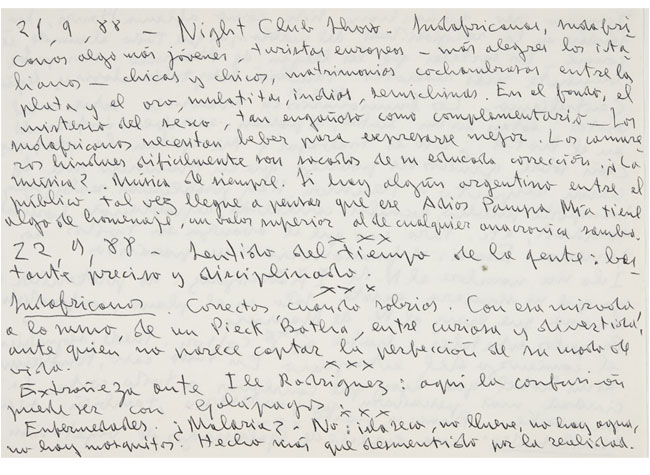 21, 9, 88 — Night Club Show. Sudafricanos, sudafri-
canos algo más jóvenes, turistas europeos — más alegres los ita-
lianos — chicas y chicos, matrimonios cochambrosos entre la
plata y el oro, mulatitas, indias, semichinas. En el fondo, el
misterio del sexo, tan engañoso como complementario — Los
sudafricanos necesitan beber para expresarse mejor. Los camare-
ros hindúes dificilmente son sacados de su educada corrección. ¿La
música? Música de siempre. Si hay algún argentino entre el
público, tal vez llegue a pensar que ese Adios Pampa Mía tiene
algo de homenaje, un valor superior al de cualquier anacronica samba.
x x x
22, 9, 88 Sentido del tiempo de la gente: bas-
tante preciso y disciplinado.
x x x
Sudafricanos. Correctos cuando sobrios. Con esa mirada,
a lo sumo, de un Pieck Botha, entre curiosa y divertida,
ante quien no parece captar la perfección de su modo de
vida.
x x x
Extrañeza ante Ile Rodriguez: aquí la confusión
puede ser con Galápagos.
x x x
Enfermedades. ¿Malaria? - No: isla seca, no llueve, no hay agua,
no hay mosquitos. Hecho más que desmentido por la realidad.